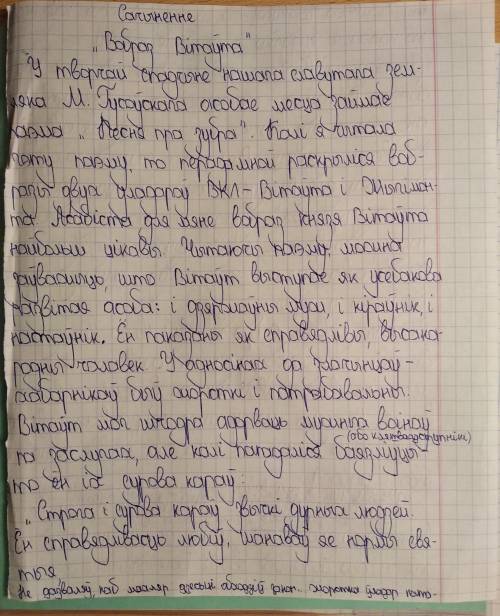 Сачыненне
„Вобраз Вітаўта"
У творчай спадчыне нашага славутага зем-
ляка М. Гусоўскага асобае месца займае
паэма „Песня пра зубра". Калі я читала
гэту паэму, то перада мной раскрыліся воб-
разы двух уладароў ВКЛ - Вітаўта і Жыгімон-
та. Асабіста для мяне вобраз князя Вітаўта
найбольш цікавы. Чытаючы паэму, можна
заўважыць, што Вітаўт выступае як усебакова
развітая асоба: і дзяржаўны муж, і кіраўнік, і
настаўнік. Ён паказаны як справядлівы, высака-
родны чалавек. У адносінах да злачынцаў-
хабарнікаў быў жорсткі і патрабавальны.
Вітаўт мог шчодра адорваць мужных воінаў
(або клятваадступнікі)
па заслугах, але калі пападаліся баязліўцы
то ён іх сурова караў:
„Строга і сурова караў звычкі дурных людзей.
Ён справядлівасць любіў, шанаваў яе нормы свя-
тыя,
Не дазваляў, каб хабар дзесьці абыходзіў закон..